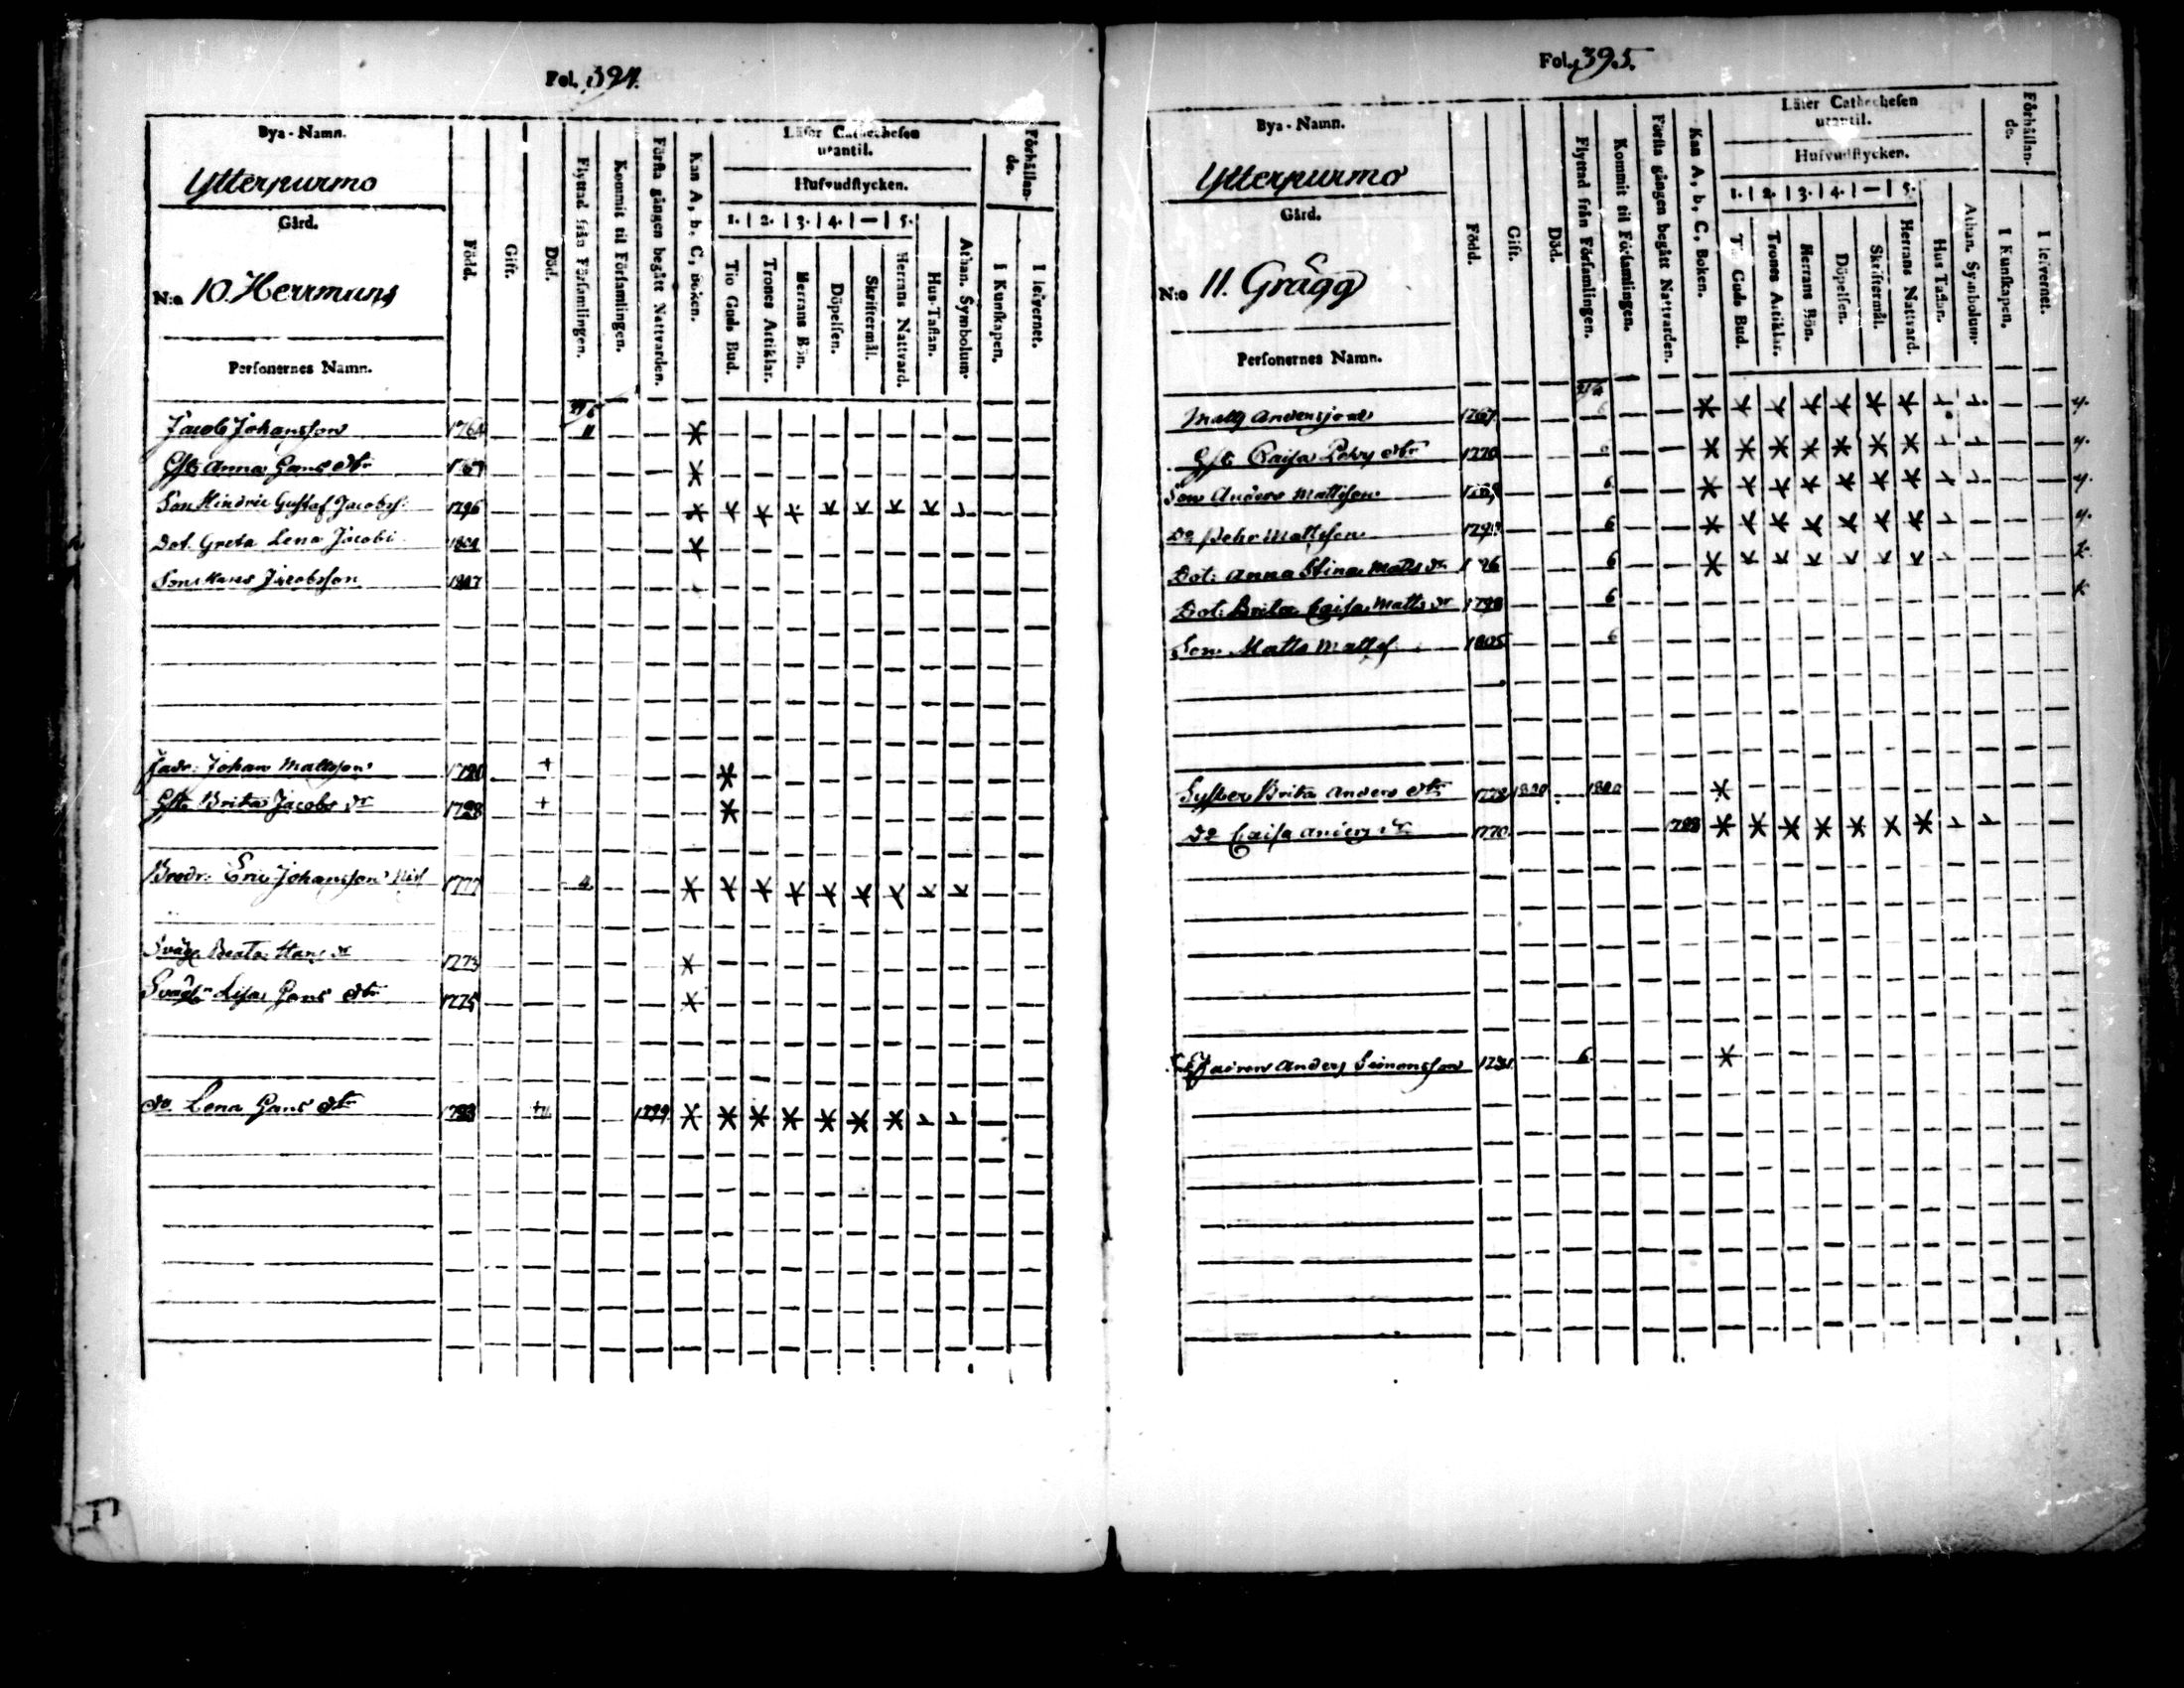 Fol. 394.
Bya-Namn.
Ytterpurmo
Gård.
N:o 10. Herrmans
Personernes Namn.
Född.
Gift.
Död.
Flyttad från Församlingen.
Kommit til Församlingen.
Första gången begått Nattvarden.
Kan A, b, C, Boken.
Läser Cathechesen utantil.
Hufvudstycken.
1. 2. 3. 4. — 5.
Tio Guds Bud.
Trones Artiklar.
Herrans Bön.
Döpelsen.
Skriftermål.
Herrans Nattvard.
Hus-Taflan.
Athan. Symbolum.
Förhållande.
I Kunskapen.
I lefvernet.
Jacob Johansson 11
Hust. Anna Hans dtr
Son Hindric Gustaf Jacobss: 1796
Dot. Greta Lena Jacobi
Son Hans Jacobsson 1807
Fadr: Johan Mattsson +
Hust. Brita Jacobs dr 1728 +
Brodr: Eric Johansson 1777 4
Sväg. Beata Hans dr 1773
Svägr Lisa Hans dtr 1775
do Lena Hans dtr 1783 + 1799
Fol. 395.
Bya-Namn.
Ytterpurmo
Gård.
N:o 11. Grägg
Personernes Namn.
Född.
Gift.
Död.
Flyttad från Församlingen.
Kommit til Församlingen.
Första gången begått Nattvarden.
Kan A, b, C, Boken.
Läser Cathechesen utantil.
Hufvudstycken.
1. 2. 3. 4. — 5.
Tio Guds Bud.
Trones Artiklar.
Herrans Bön.
Döpelsen.
Skriftermål.
Herrans Nattvard.
Hus Taflan.
Athan. Symbolum.
Förhållande.
I Kunskapen.
I lefvernet.
Matts Andersson 1767 6
Hust. Caisa Pehrs dtr 1770 6
Son Anders Mattsson 6
Do Pehr Mattsson 6
Dot: Anna Stina Matts dr 1796 6
Dot: Brita Caisa Matts dr 1798 6
Son Matts Matts: 1805 6
Syster Brita Anders dtr 1778 1800 1800
Do Caisa Anders dr 1770 1788
Anders Simonsson 6